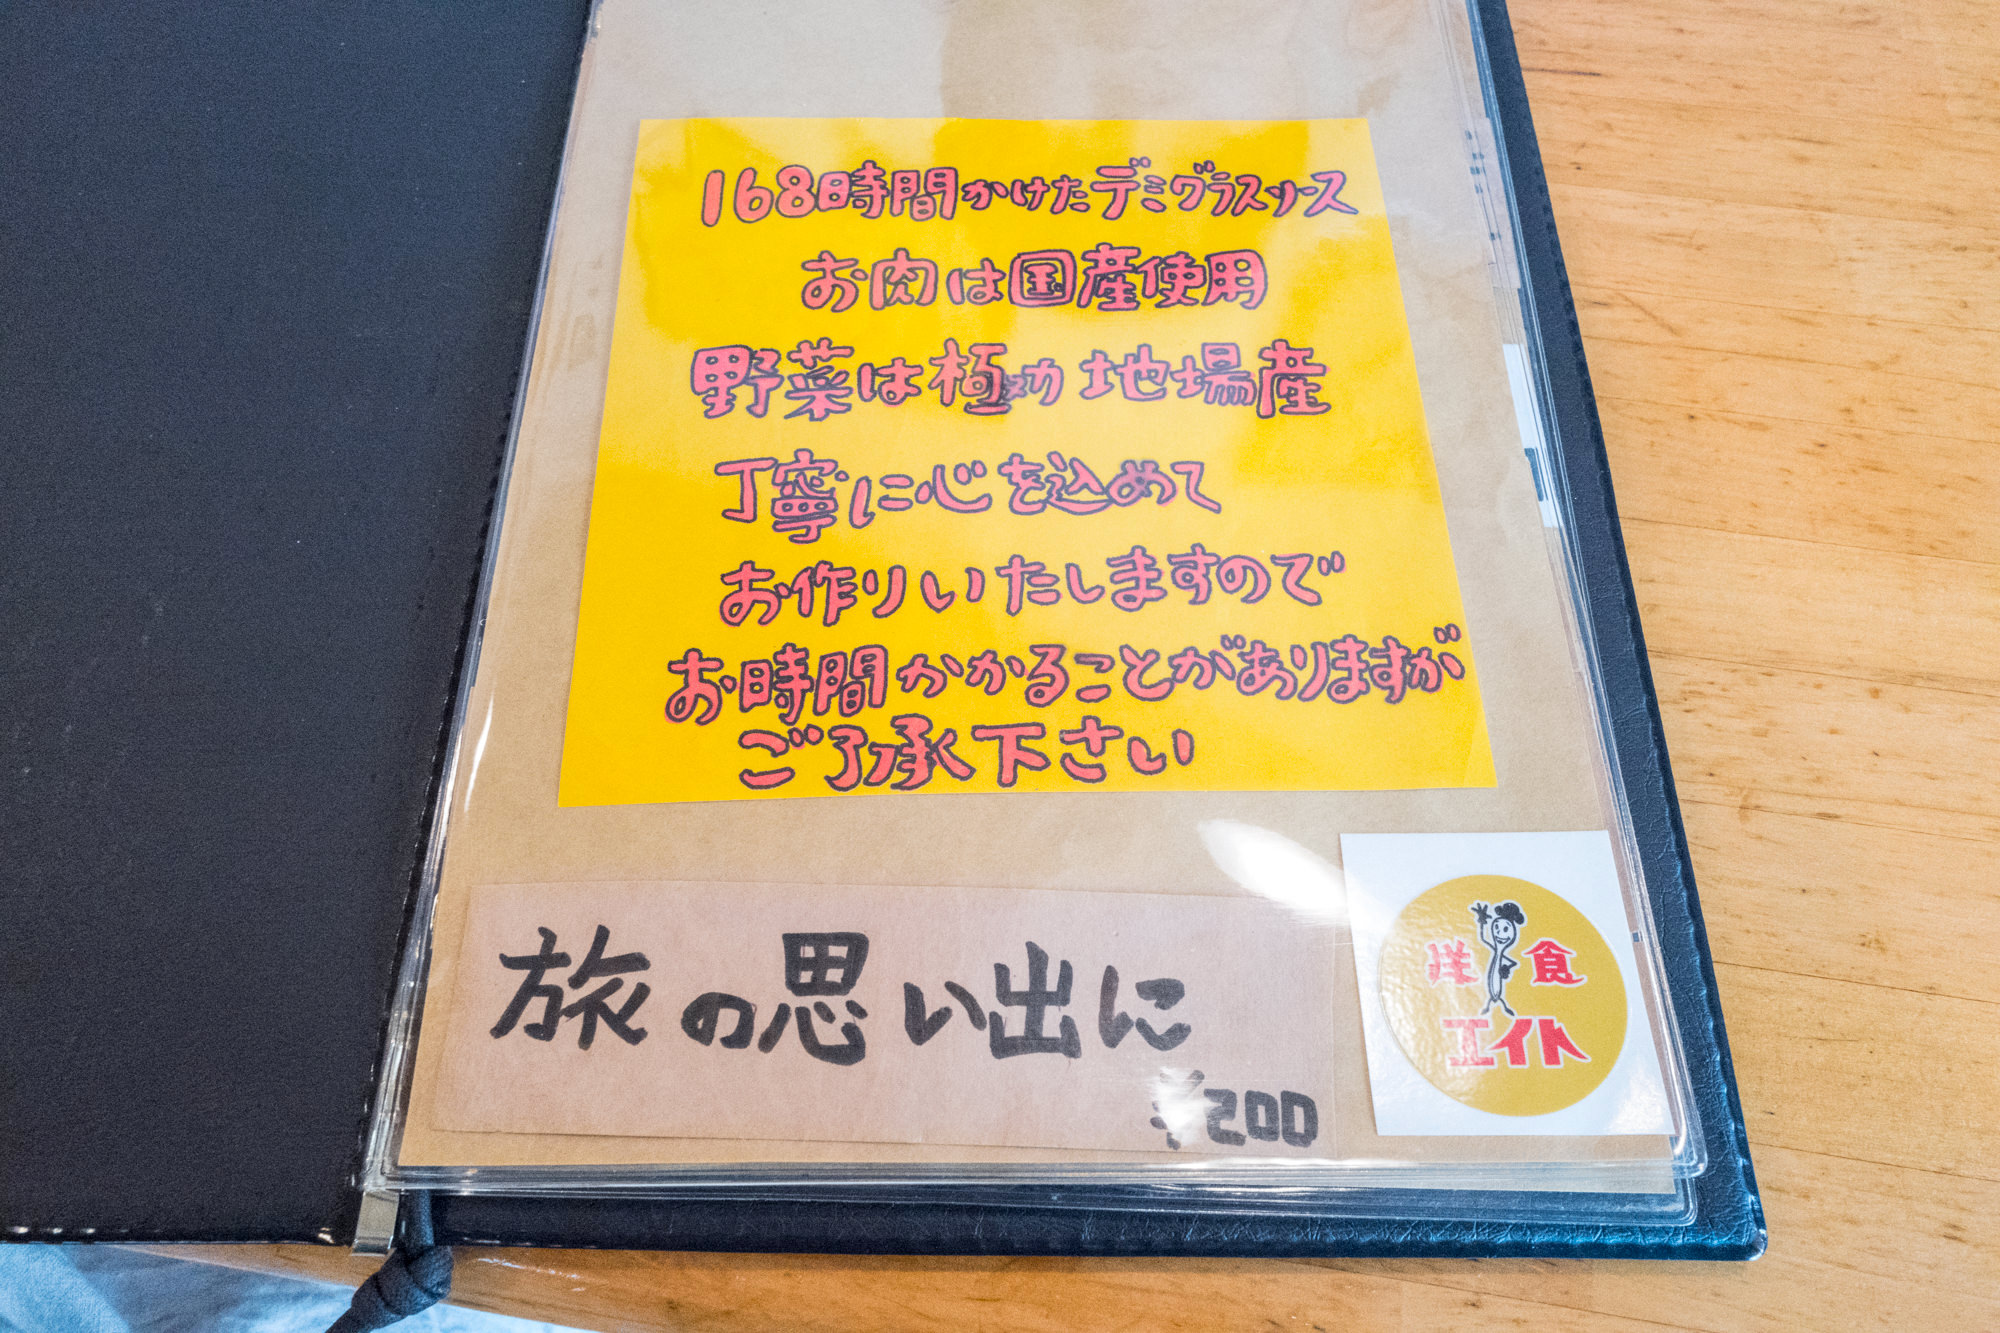 168時間かけたデミグラスソース
お肉は国産使用
野菜は極力地場産
丁寧に心を込めて
お作りいたしますので
お時間かかることがありますが
ご了承下さい
旅の思い出に
¥200
洋食
エイト